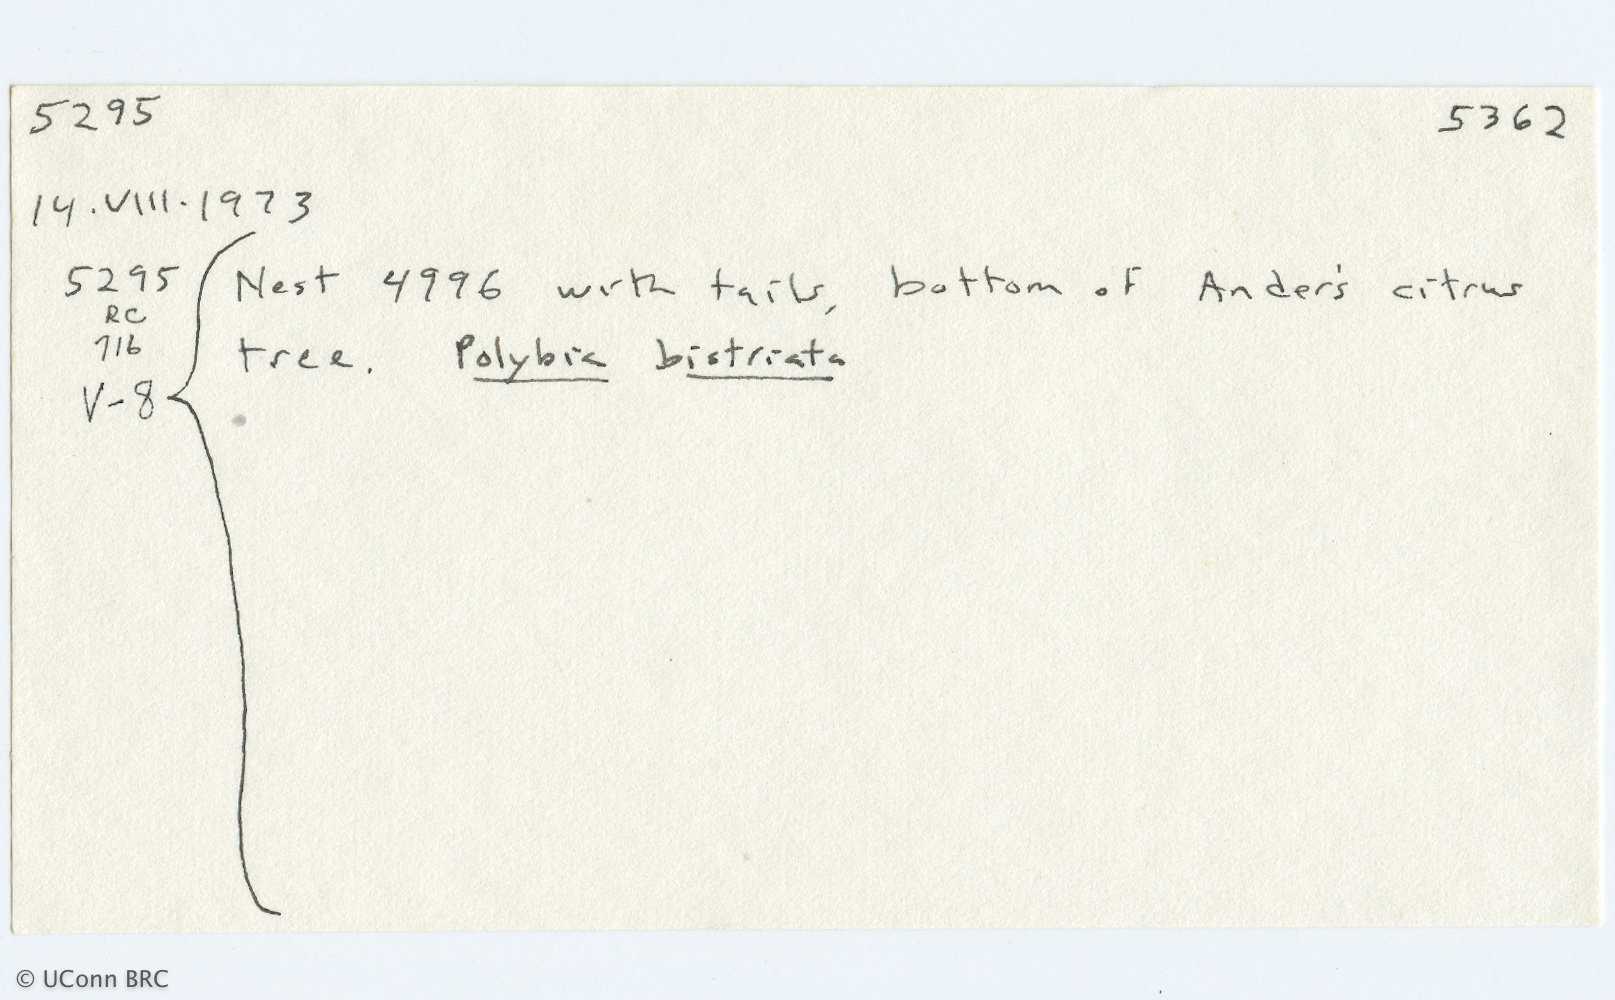 5295
5362
14.VIII.1973
5295
RC
716
V-8
Nest 4996 with tails, bottom of Ander's citrus
tree. Polybia bistriata
© UConn BRC